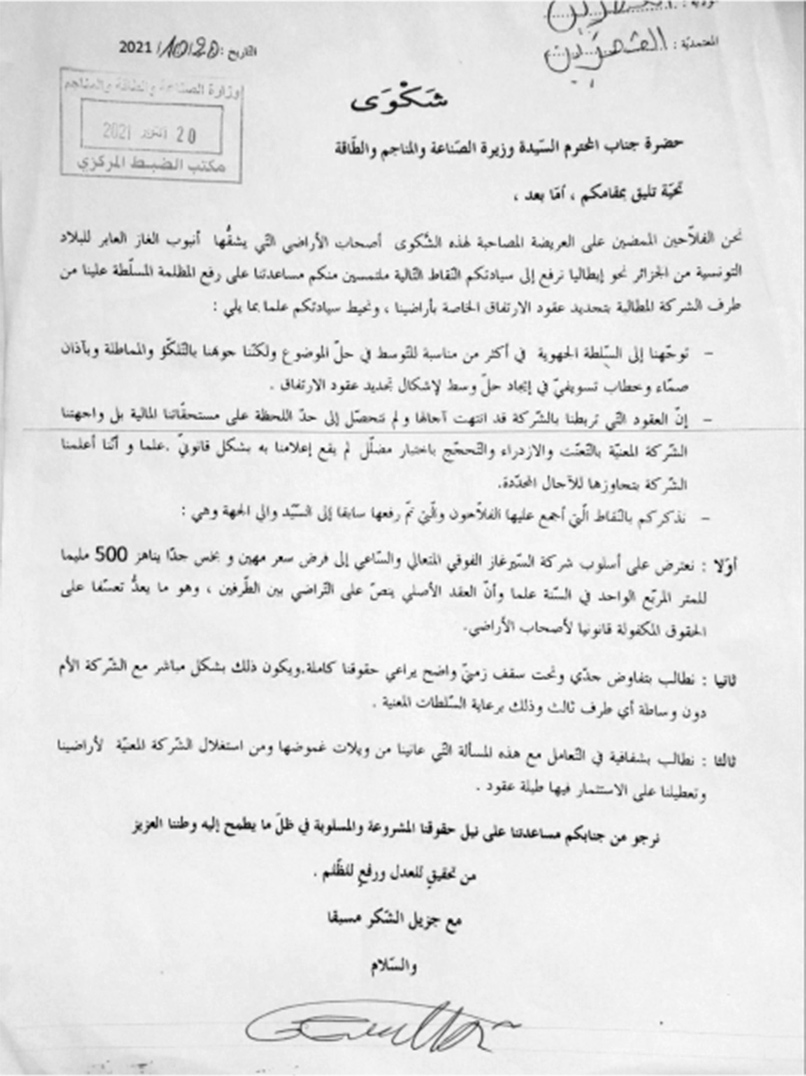 القصرين
المعتمديّة :
التاريخ : 2021/10/20
وزارة الصناعة والطاقة والمناجم
20 أكتوبر 2021
مكتب الضبط المركزي
شَكْوَى
حضرة جناب المحترم السيّدة وزيرة الصّناعة والمناجم والطّاقة
تحيّة تليق بمقامكم ، أمّا بعد ،
نحن الفلاّحين الممضين على العريضة المصاحبة لهذه الشّكوى أصحاب الأراضي التّي يشقُّها أنبوب الغاز العابر للبلاد
التونسية من الجزائر نحو إيطاليا نرفع إلى سيادتكم النّقاط التّالية ملتمسين منكم مساعدتنا على رفع المظلمة المسلّطة علينا من
طرف الشركة المطالبة بتجديد عقود الارتفاق الخاصة بأراضينا ، ونحيط سيادتكم علما بما يلي :
– توجّهنا إلى السّلطة الجهوية في أكثر من مناسبة للتّوسط في حلّ الموضوع ولكنّنا جوبهنا بالتّلكّؤ والمماطلة وبآذان
صمّاء وخطاب تسويفيّ في إيجاد حلّ وسط لإشكال تجديد عقود الارتفاق .
– إنّ العقود التّي تربطنا بالشّركة قد انتهت آجالها ولم نتحصّل إلى حدّ اللحظة على مستحقّاتنا المالية بل واجهتنا
الشّركة المعنيّة بالتّعنّت والازدراء والتّحجّج باختبار مضلّل لم يقع إعلامنا به بشكل قانونيّ .علما و أنّنا أعلمنا
الشّركة بتجاوزها للآجال المحدّدة.
– نذكركم بالنّقاط الّتي أجمع عليها الفلاّحون والّتي تمّ رفعها سابقا إلى السّيّد والي الجهة وهي :
أوّلا : نعترض على أسلوب شركة السّيرغاز الفوقي المتعالي والسّاعي إلى فرض سعر مهين و بخس جدّا يناهز 500 مليما
للمتر المربّع الواحد في السّنة علما وأنّ العقد الأصلي ينصّ على التّراضي بين الطّرفين ، وهو ما يعدُّ تعسّفا على
الحقوق المكفولة قانونيا لأصحاب الأراضي.
ثانيا : نطالب بتفاوض جدّي وتحت سقف زمنيّ واضح يراعي حقوقنا كاملة.ويكون ذلك بشكل مباشر مع الشّركة الأم
دون وساطة أي طرف ثالث وذلك برعاية السّلطات المعنية .
ثالثا : نطالب بشفافية في التّعامل مع هذه المسألة التّي عانينا من ويلات غموضها ومن استغلال الشّركة المعنيّة لأراضينا
وتعطيلنا على الاستثمار فيها طيلة عقود .
نرجو من جنابكم مساعدتنا على نيل حقوقنا المشروعة والمسلوبة في ظلّ ما يطمح إليه وطننا العزيز
من تحقيقٍ للعدل ورفعٍ للظّلم .
مع جزيل الشّكر مسبقا
والسّلام